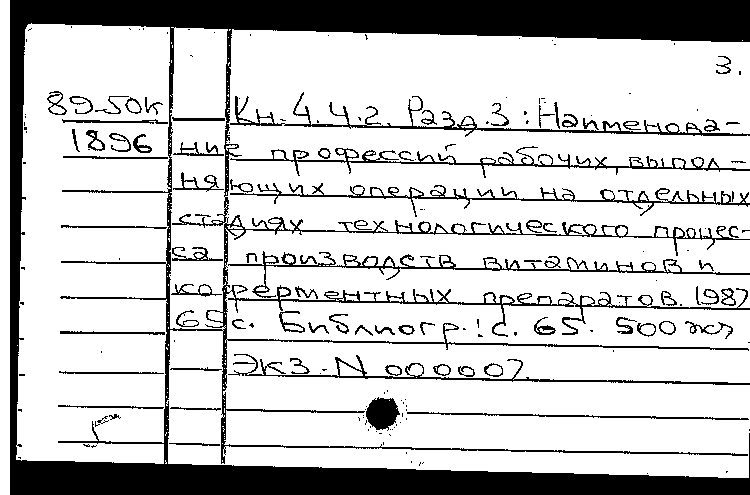 3.
89-50к Кн. 4. ч.2. Разд.3 : Наименова-
1896 ние профессий рабочих, выпол-
няющих операции на отдельных
стадиях технологического процес-
са производств витаминов и
коферментных препаратов. 1987
65 с. Библиогр.: с. 65. 500 экз
Экз. N 000007.